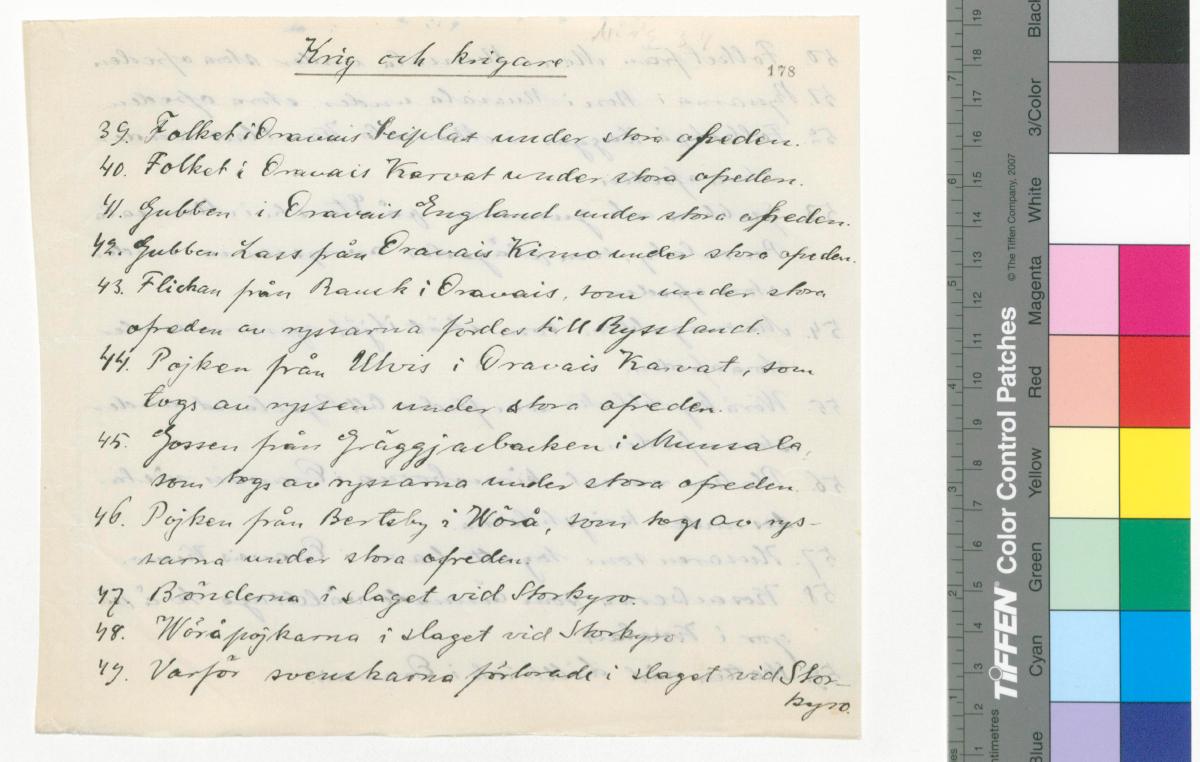 Krig och krigare
178
39. Folket i Oravais Keiplax under stora ofreden.
40. Folket i Oravais Karvat under stora ofreden.
41. Gubben i Oravais England under stora ofreden.
42. Gubben Lass från Oravais Kimo under stora ofreden.
43. Flickan från Rausk i Oravais, som under stora
ofreden av ryssarna fördes till Ryssland.
44. Pojken från Ulvis i Oravais Karvat, som
togs av ryssen under stora ofreden.
45. Gossen från Gräggjasbacken i Munsala,
som togs av ryssarna under stora ofreden.
46. Pojken från Bertby i Wörå, som togs av rys-
sarna under stora ofreden.
47. Bönderna i slaget vid Storkyro.
48. Wöråpojkarna i slaget vid Storkyro
49. Varför svenskarna förlorade i slaget vid Stor-
kyro.
TIFFEN® Color Control Patches
© The Tiffen Company, 2007
Blue
Cyan
Green
Yellow
Red
Magenta
White
3/Color
Black
1 2 3 4 5 6 7 8 9 10 11 12 13 14 15 16 17 18 19
1 2 3 4 5 6 7